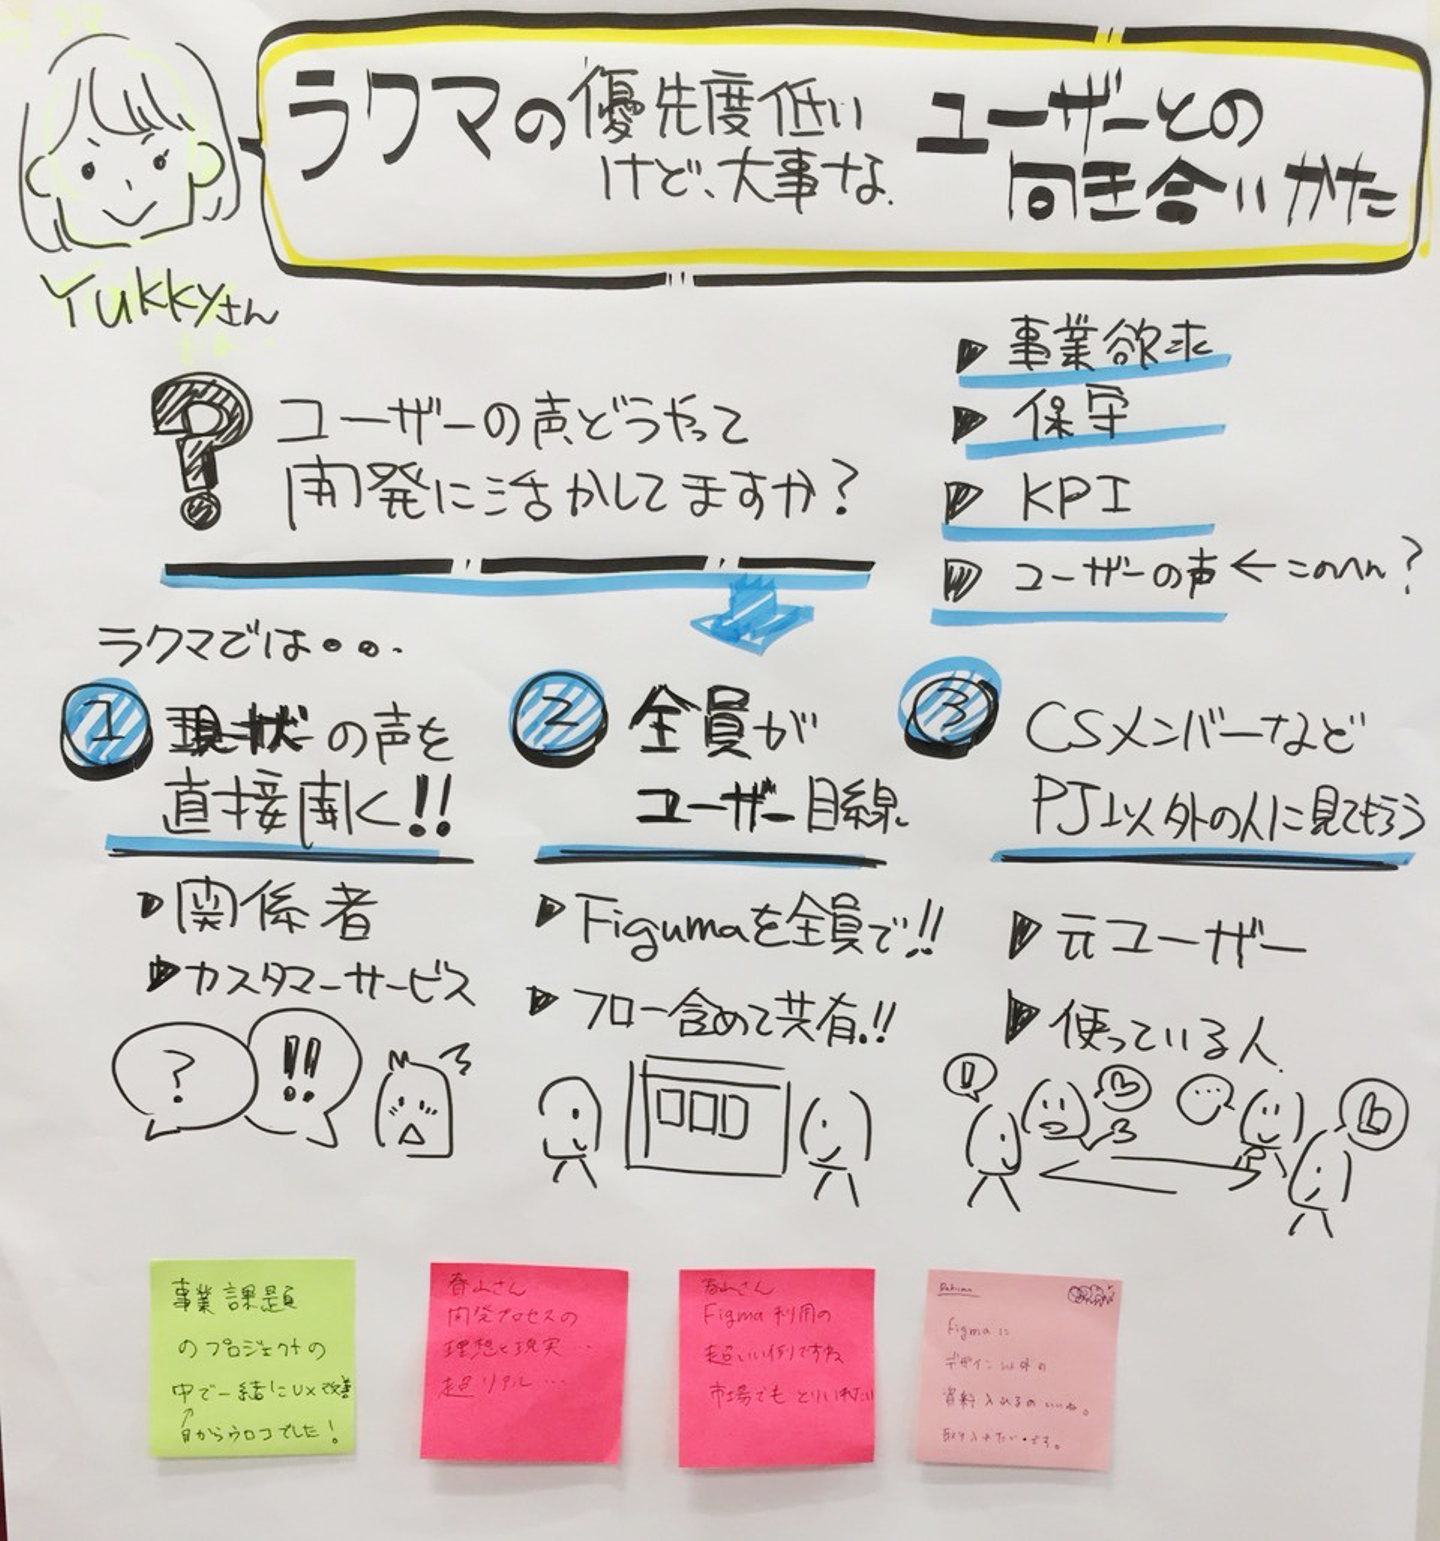 ラクマの優先度低い
けど、大事な
ユーザーとの
向き合いかた
Yukkyさん
ユーザーの声どうやって
開発に活かしてますか?
事業欲求
保守
KPI
ユーザーの声←このへん?
ラクマでは・・・
1
現状の声を
直接聞く!!
関係者
カスタマーサービス
?
!!
2
全員が
ユーザー目線
Figumaを全員で!!
フロー含めて共有!!
3
CSメンバーなど
PJ以外の人に見てもらう
元ユーザー
使っている人
!
...
事業課題
のプロジェクトの
中で一緒にUX改善
↑目からウロコでした!
春山さん
開発プロセスの
理想と現実…
超リアル…
春山さん
Figma利用の
超いい例ですね
市場でもとりいれたい
Figmaに
デザイン以外の
資料入れるのいいね。
取り入れたいです。